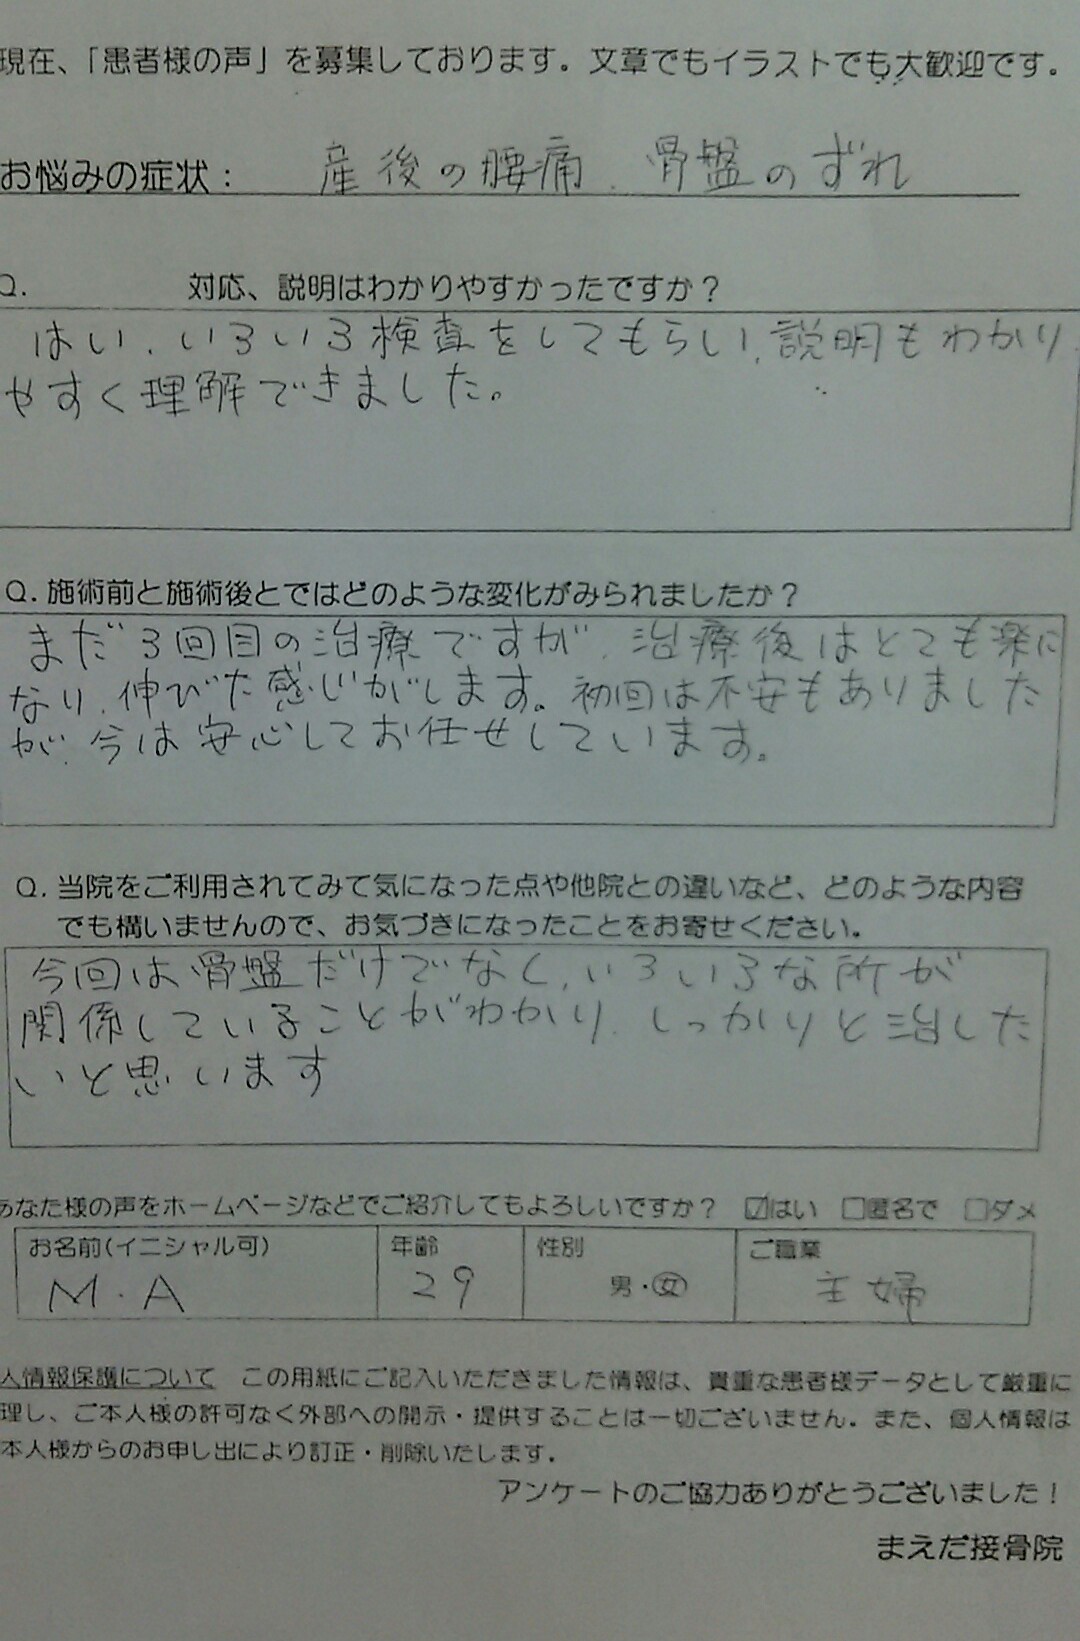 現在、「患者様の声」を募集しております。文章でもイラストでも大歓迎です。
お悩みの症状： 産後の腰痛、骨盤のずれ
Q. 対応、説明はわかりやすかったですか？
はい、いろいろ検査をしてもらい、説明もわかり
やすく理解できました。
Q. 施術前と施術後とではどのような変化がみられましたか？
まだ3回目の治療ですが、治療後はとても楽に
なり、伸びた感じがします。初回は不安もありました
が、今は安心してお任せしています。
Q. 当院をご利用されてみて気になった点や他院との違いなど、どのような内容
でも構いませんので、お気づきになったことをお寄せください。
今回は骨盤だけでなく、いろいろな所が
関係していることがわかり、しっかりと治した
いと思います
あなた様の声をホームページなどでご紹介してもよろしいですか？ ☑はい □匿名で □ダメ
お名前(イニシャル可) 年齢 性別 ご職業
M.A 29 男・女 主婦
人情報保護について この用紙にご記入いただきました情報は、貴重な患者様データとして厳重に
理し、ご本人様の許可なく外部への開示・提供することは一切ございません。また、個人情報は
本人様からのお申し出により訂正・削除いたします。
アンケートのご協力ありがとうございました！
まえだ接骨院